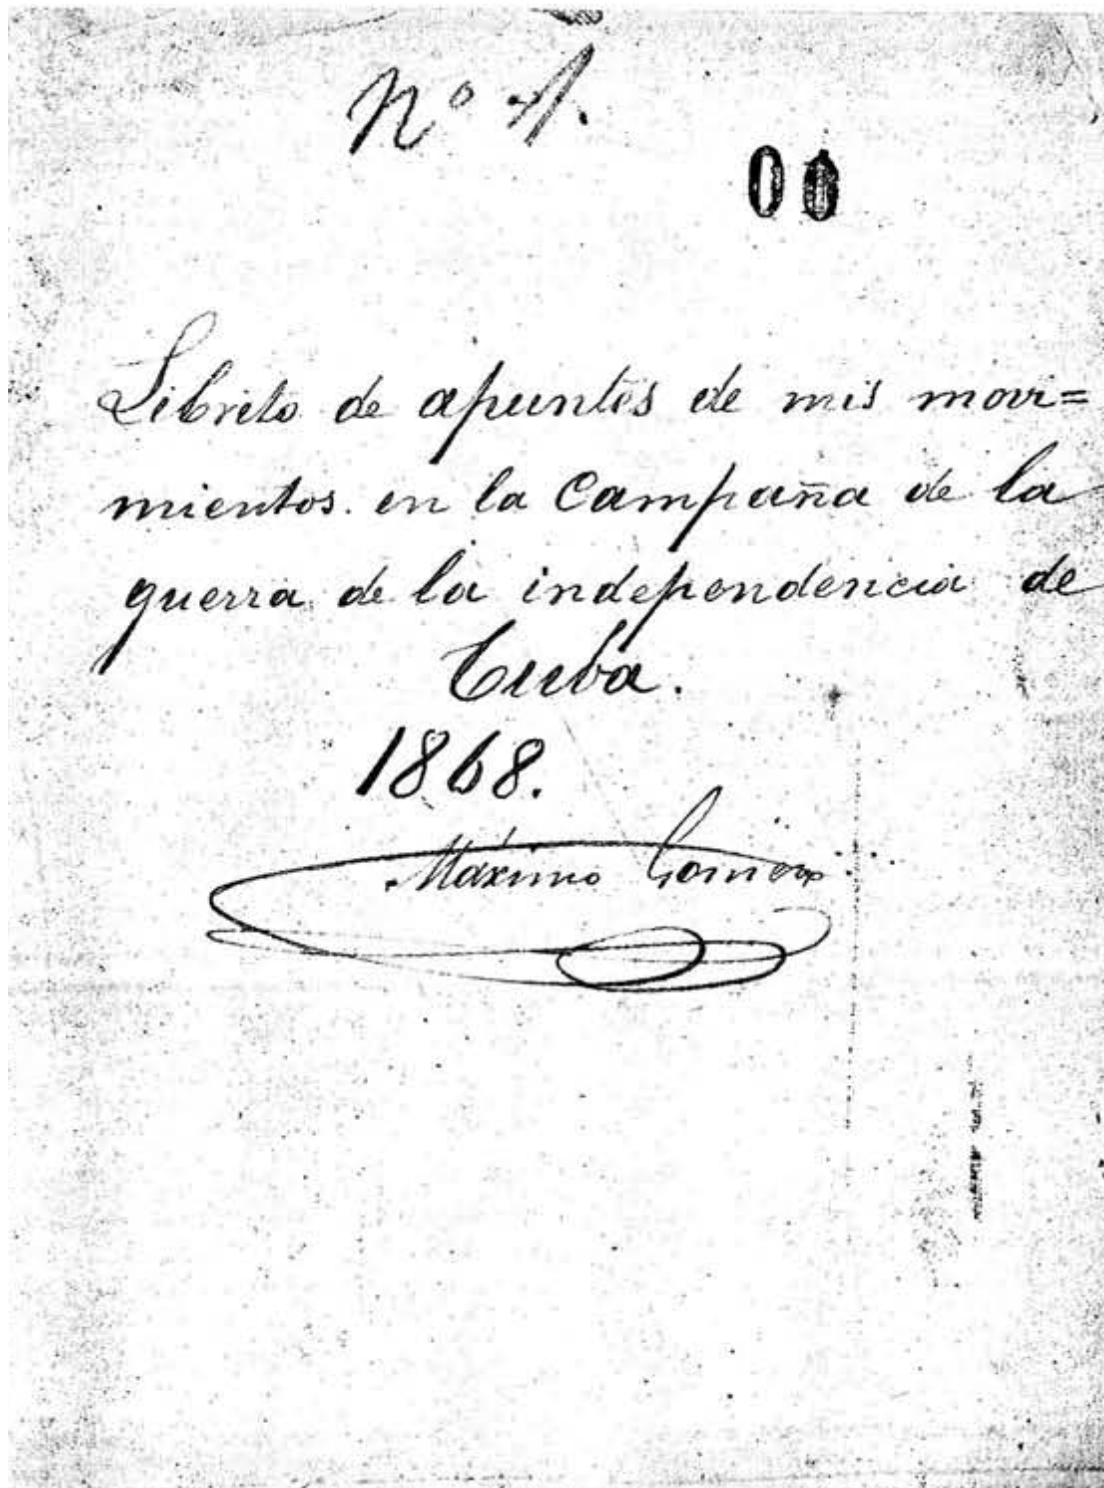 Nº 1.
00
Librito de apuntes de mis movi=
mientos. en la Campaña de la
guerra de la independencia de
Cuba.
1868.
Máximo Gómez